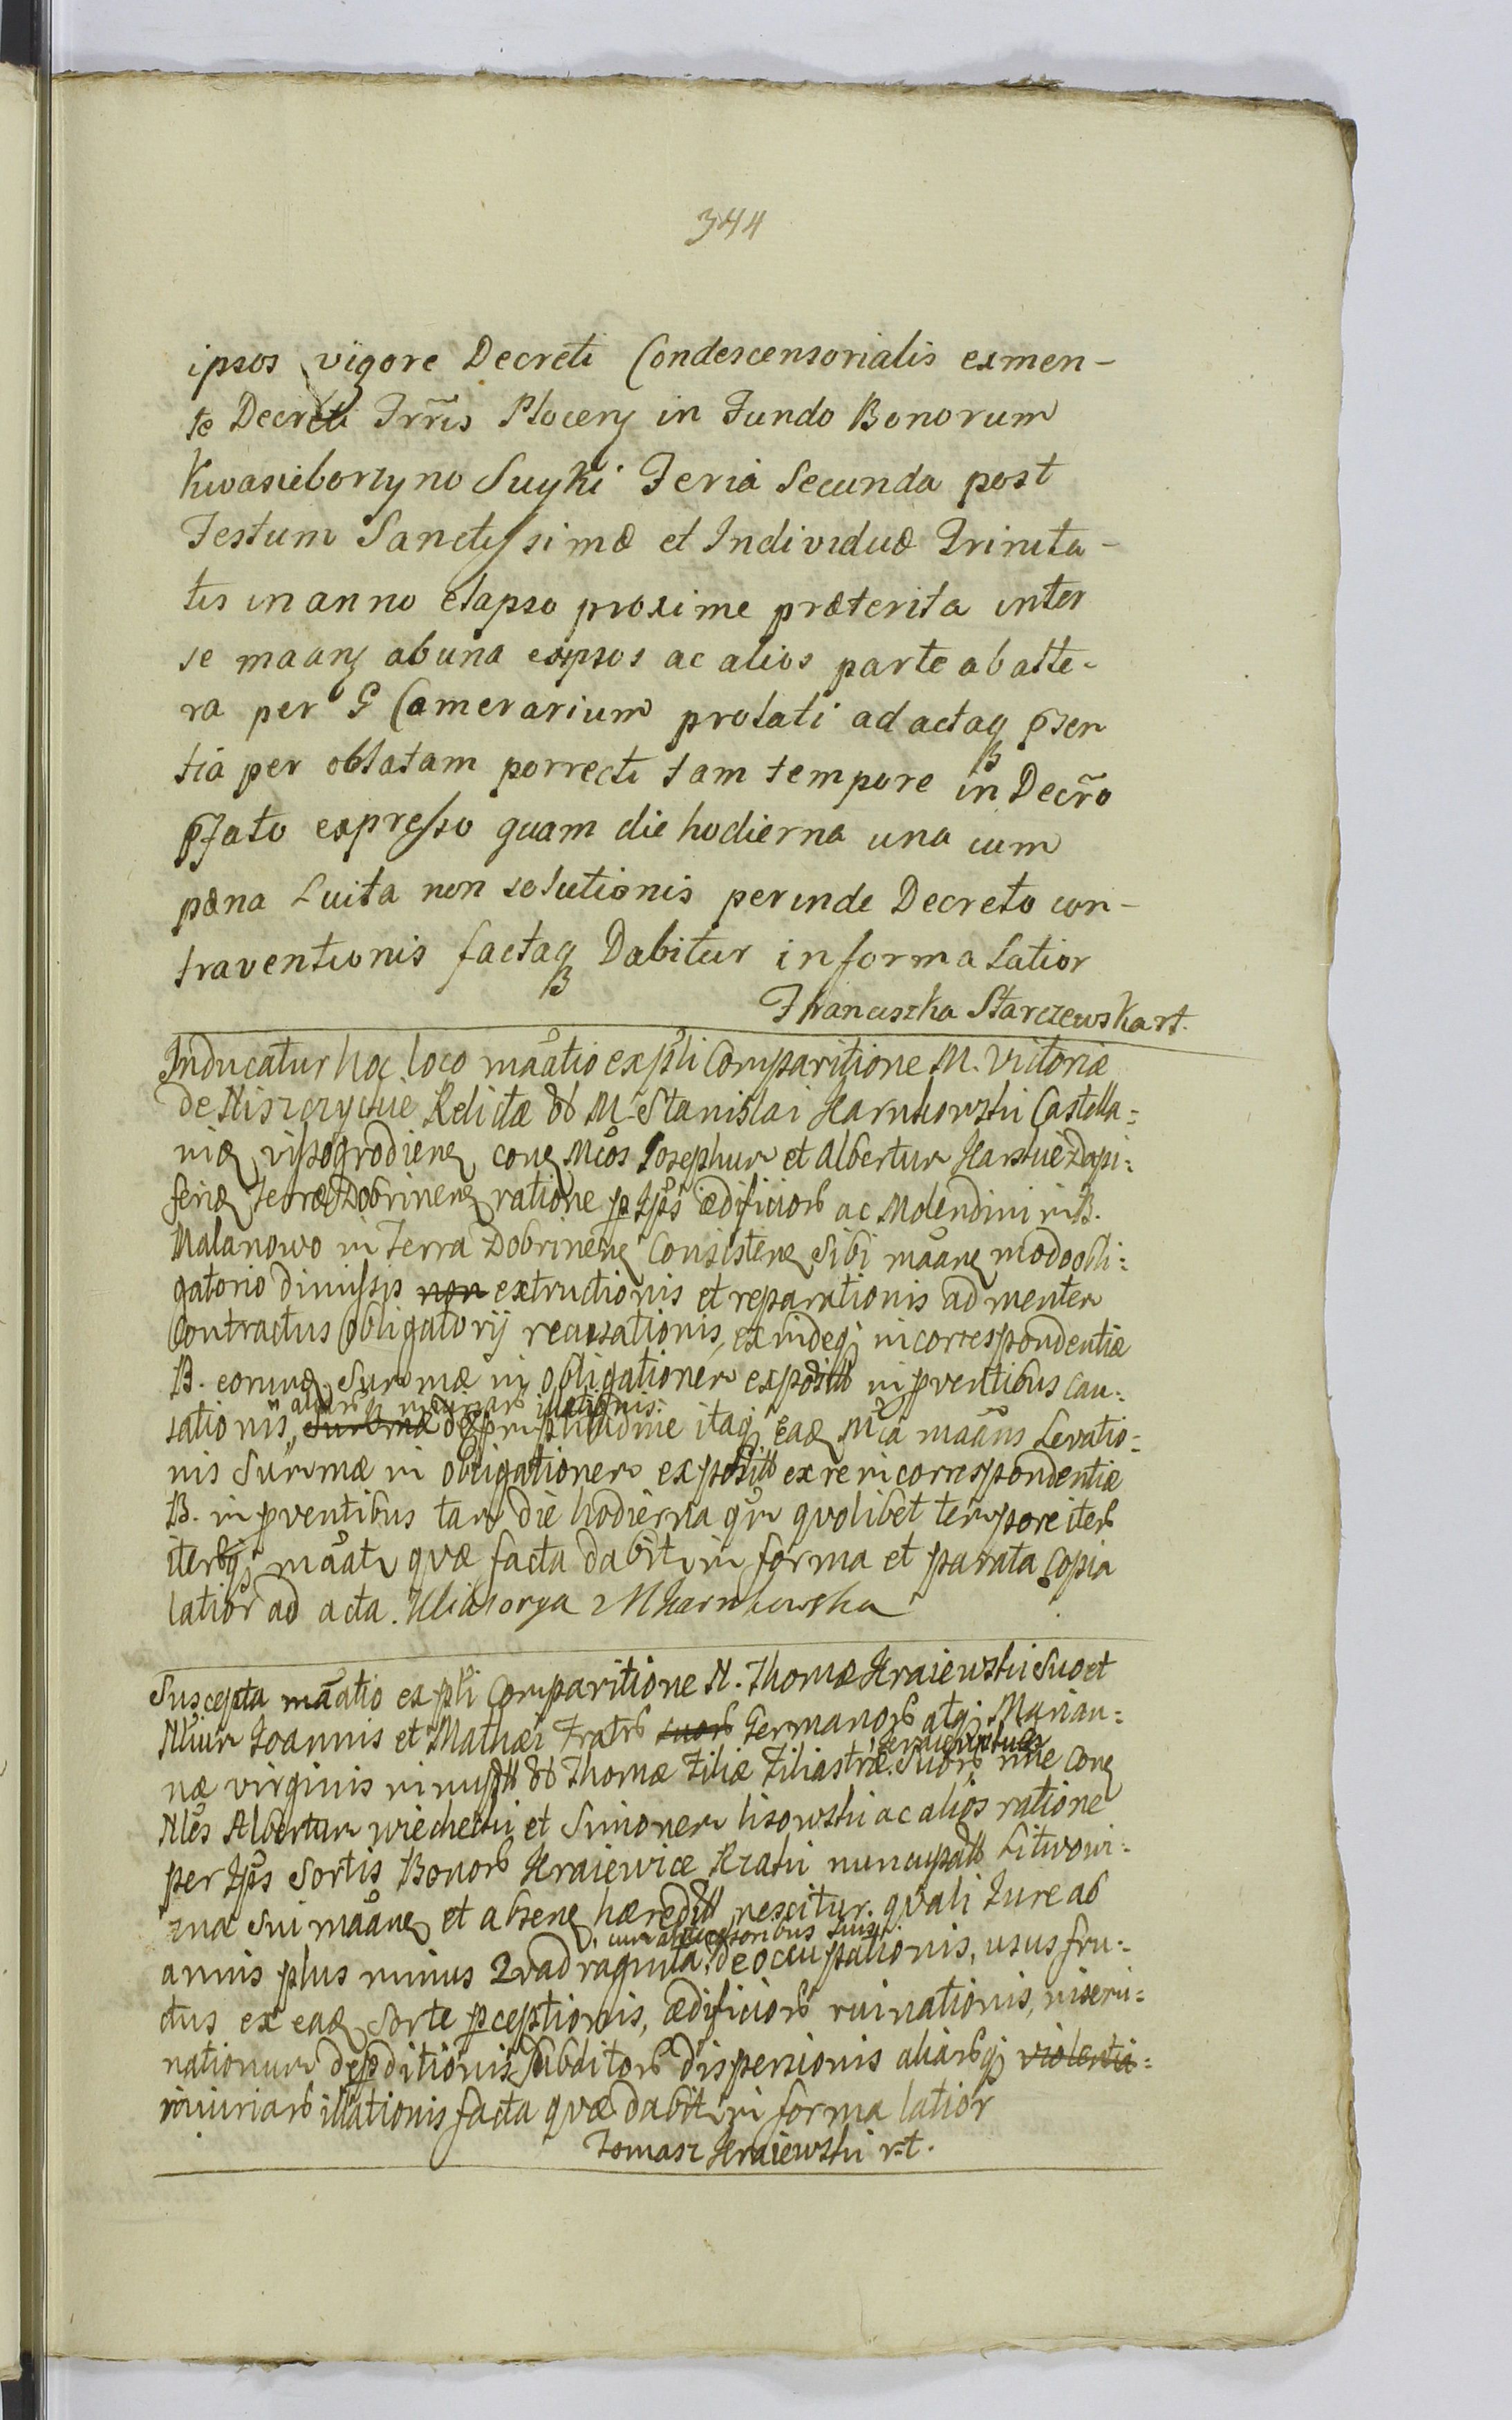 344
ipsos vigore Decreti Condescensorialis exmen-
te Decreti Trr̃is Plocen̨ in Fundo Bonorum
Kwasieborzyno Suyki Feria Secunda post
Festum Sanctissimæ et Individuæ Trinita-
tis in anno elapso proxime præterita inter
se maan̨ ab una eosipsos ac alios parte ab alte-
ra per G Camerarium prolati ad actaq̨ p̃sen
tia per oblatam porrecti tam tempore in Decr̃o
p̃fato expresso quam die hodierna una cum
pæna Luita non solutionis perinde Decreto con-
traventionis factaq̨ Dabitur in forma Latior
Franciszka Starczewska rt.
Inducatur hoc loco maatio ex pli Comparitione M. Victoriæ
de Niszczyckie Relictæ olb M. Stanislai Karnkowski Castella=
niæ vissogrodien̨ con̨ Mcos Josephum et Albertum Karskie Dapi=
feriæ Terræ Dobrinen̨ ratione p Ips ædificiorb ac Molendini in B.
Malanowo in Terra Dobrinen̨ Consisten̨ Sibi maan̨ modo obli=
gatorio dimissis non extructionis et reparationis ad mentem
Contractus Obligatorij recusationis, exindeq; incorrespondentiæ
B. eorund̨ Summæ in obligationem exposittt in pventibus cau=
aliarb injuriarb illationis
sationis, Summæ de promptitudine itaq; Ead̨ Mca maans Levatio=
nis Summæ in obligationem exposittt ex re incorrespondentiæ
B. in pventibus tam die hodierna qm quolibet tempore iterb
iterbq; maatr quæ facta dabitr in forma et parata Copia
latior ad acta. Wiktorya M Karnkowska
Suscepta maatio ex pli Comparitione N. Thomæ Kraiewski Suo et
Nlium Joannis et Mathæi Fratrb suorb Germanorb atq; Marian=
næ virginis olb Thomæ Filiæ Filiastræ Suorb nne con̨
Nles Albertum wiechecki et Simonem lisowski ac alios ratione
per Ips Sortis Bonorb Kraiewice Kzaki nuncupattt Litwowi=
zna Sui maan̨ et absen̨ hæredittt nescitur quali Jure ab
cum antecessoribus suis
annis plus minus Quadraginta de occupationis, usus fru=
ctus ex ead̨ Sorte pceptionis, ædificiorb ruinationis,
nationum depditionis, Subditorb dispersionis aliarbq; violentia=
injuriarb illationis facta quæ dabitr in forma latior
Tomasz Kraiewski r.t.